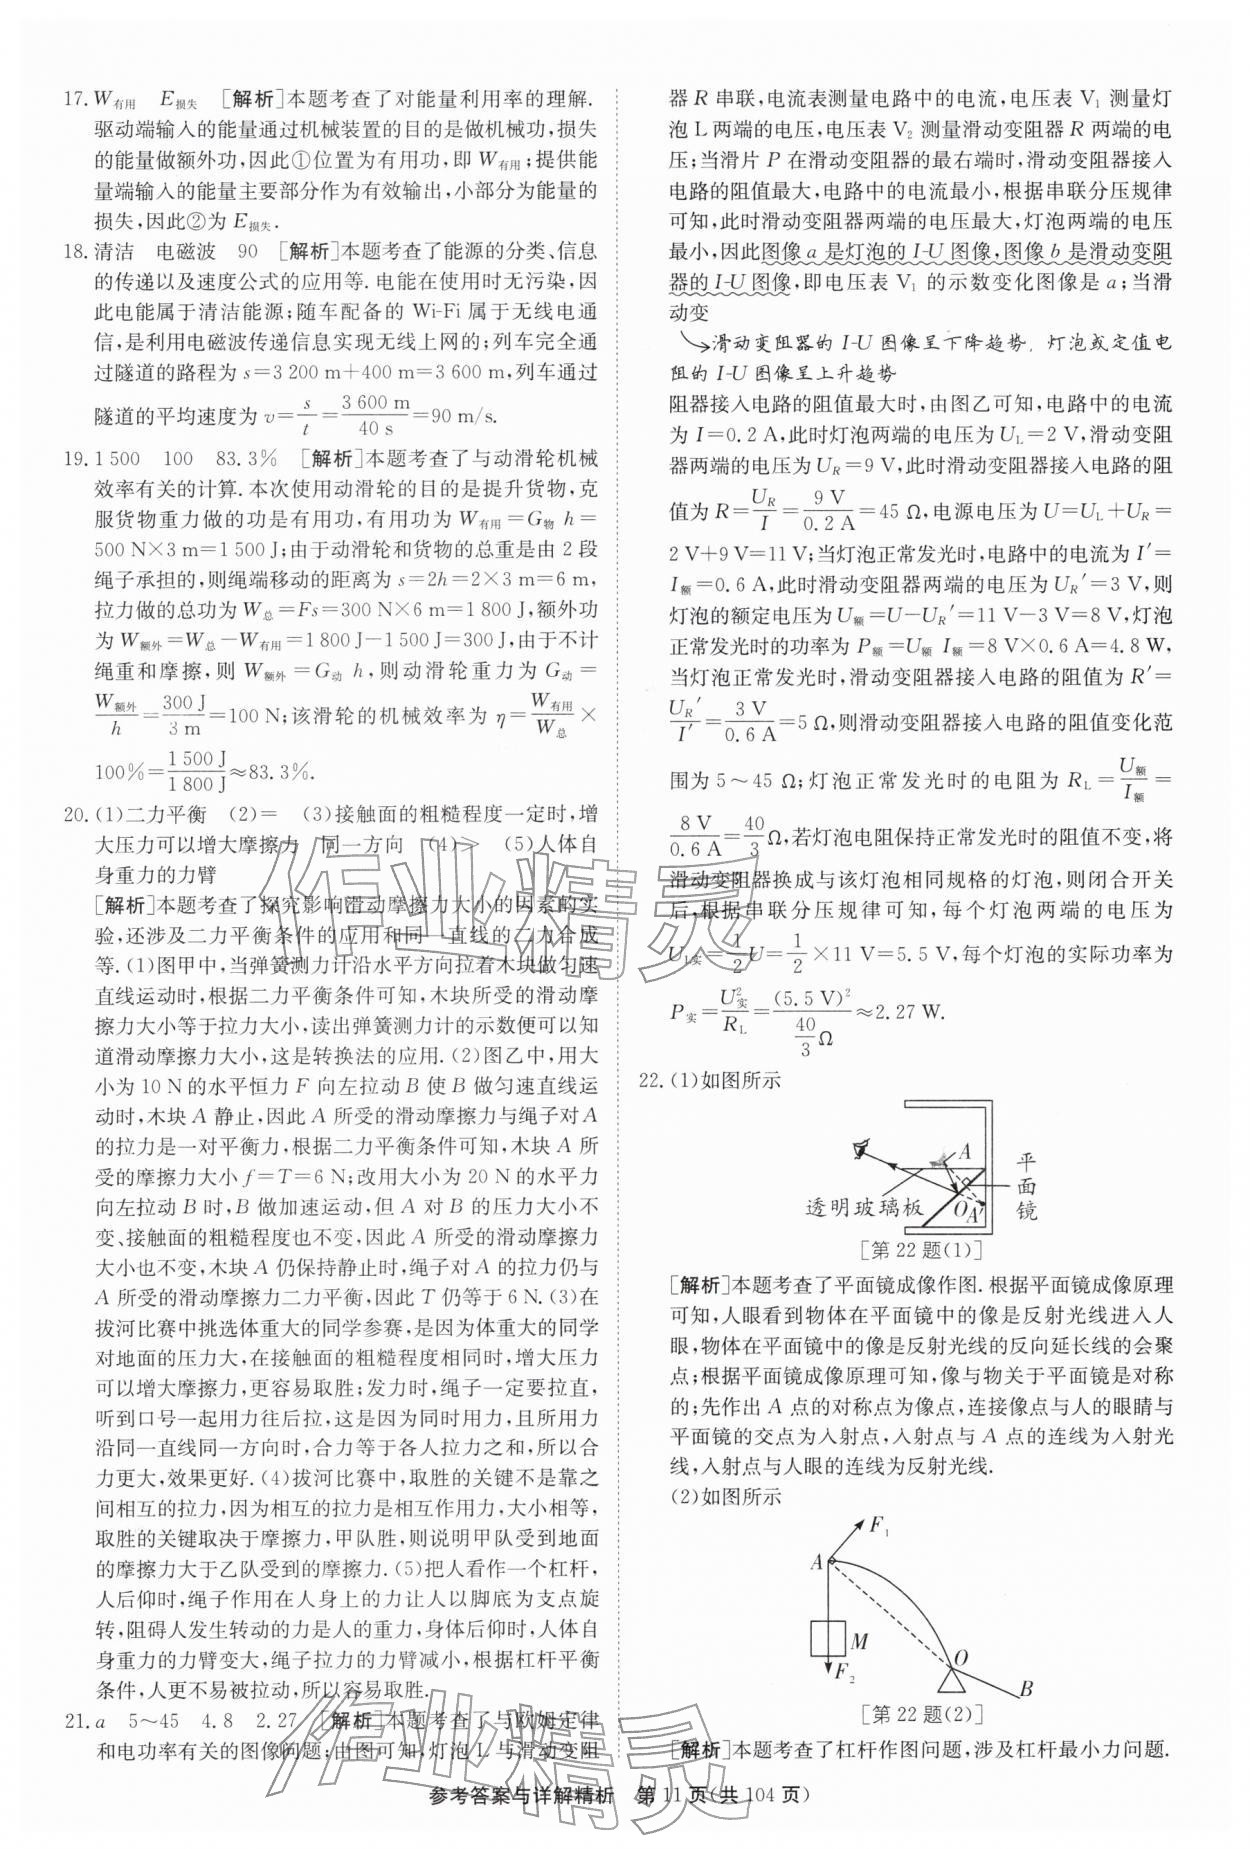 17. W有用 E损失 [解析]本题考查了对能量利用率的理解.
驱动端输入的能量通过机械装置的目的是做机械功,损失
的能量做额外功,因此①位置为有用功,即 W有用;提供能
量端输入的能量主要部分作为有效输出,小部分为能量的
损失,因此②为 E损失.
18. 清洁 电磁波 90 [解析]本题考查了能源的分类、信息
的传递以及速度公式的应用等. 电能在使用时无污染,因
此电能属于清洁能源;随车配备的 Wi-Fi 属于无线电通
信,是利用电磁波传递信息实现无线上网的;列车完全通
过隧道的路程为 s=3 200 m+400 m=3 600 m,列车通过
隧道的平均速度为 v=s/t=3 600 m/40 s=90 m/s.
19. 1 500 100 83.3% [解析]本题考查了与动滑轮机械
效率有关的计算. 本次使用动滑轮的目的是提升货物,克
服货物重力做的功是有用功,有用功为 W有用=G物 h=
500 N×3 m=1 500 J;由于动滑轮和货物的总重是由 2 段
绳子承担的,则绳端移动的距离为 s=2h=2×3 m=6 m,
拉力做的总功为 W总=Fs=300 N×6 m=1 800 J,额外功
为 W额外=W总-W有用=1 800 J-1 500 J=300 J,由于不计
绳重和摩擦,则 W额外=G动 h,则动滑轮重力为 G动=
W额外/h=300 J/3 m=100 N;该滑轮的机械效率为 η=W有用/W总×
100%=1 500 J/1 800 J≈83.3%.
20. (1)二力平衡 (2)= (3)接触面的粗糙程度一定时,增
大压力可以增大摩擦力 同一方向 (4)> (5)人体自
身重力的力臂
[解析]本题考查了探究影响滑动摩擦力大小的因素的实
验,还涉及二力平衡条件的应用和同一直线的二力合成
等. (1)图甲中,当弹簧测力计沿水平方向拉着木块做匀速
直线运动时,根据二力平衡条件可知,木块所受的滑动摩
擦力大小等于拉力大小,读出弹簧测力计的示数便可以知
道滑动摩擦力大小,这是转换法的应用. (2)图乙中,用大
小为 10 N 的水平恒力 F 向左拉动 B 使 B 做匀速直线运
动时,木块 A 静止,因此 A 所受的滑动摩擦力与绳子对 A
的拉力是一对平衡力,根据二力平衡条件可知,木块 A 所
受的摩擦力大小 f=T=6 N;改用大小为 20 N 的水平力
向左拉动 B 时,B 做加速运动,但 A 对 B 的压力大小不
变、接触面的粗糙程度也不变,因此 A 所受的滑动摩擦力
大小也不变,木块 A 仍保持静止时,绳子对 A 的拉力仍与
A 所受的滑动摩擦力二力平衡,因此 T 仍等于 6 N. (3)在
拔河比赛中挑选体重大的同学参赛,是因为体重大的同学
对地面的压力大,在接触面的粗糙程度相同时,增大压力
可以增大摩擦力,更容易取胜;发力时,绳子一定要拉直,
听到口号一起用力往后拉,这是因为同时用力,且所用力
沿同一直线同一方向时,合力等于各人拉力之和,所以合
力更大,效果更好. (4)拔河比赛中,取胜的关键不是靠之
间相互的拉力,因为相互的拉力是相互作用力,大小相等,
取胜的关键取决于摩擦力,甲队胜,则说明甲队受到地面
的摩擦力大于乙队受到的摩擦力. (5)把人看作一个杠杆,
人后仰时,绳子作用在人身上的力让人以脚底为支点旋
转,阻碍人发生转动的力是人的重力,身体后仰时,人体自
身重力的力臂变大,绳子拉力的力臂减小,根据杠杆平衡
条件,人更不易被拉动,所以容易取胜.
21. a 5~45 4.8 2.27 [解析]本题考查了与欧姆定律
和电功率有关的图像问题;由图可知,灯泡 L 与滑动变阻
器 R 串联,电流表测量电路中的电流,电压表 V₁ 测量灯
泡 L 两端的电压,电压表 V₂ 测量滑动变阻器 R 两端的电
压;当滑片 P 在滑动变阻器的最右端时,滑动变阻器接入
电路的阻值最大,电路中的电流最小,根据串联分压规律
可知,此时滑动变阻器两端的电压最大,灯泡两端的电压
最小,因此图像 a 是灯泡的 I-U 图像,图像 b 是滑动变阻
器的 I-U 图像,即电压表 V₁ 的示数变化图像是 a;当滑
动变
滑动变阻器的 I-U 图像呈下降趋势,灯泡或定值电
阻的 I-U 图像呈上升趋势
阻器接入电路的阻值最大时,由图乙可知,电路中的电流
为 I=0.2 A,此时灯泡两端的电压为 UL=2 V,滑动变阻
器两端的电压为 UR=9 V,此时滑动变阻器接入电路的阻
值为 R=UR/I=9 V/0.2 A=45 Ω,电源电压为 U=UL+UR=
2 V+9 V=11 V;当灯泡正常发光时,电路中的电流为 I′=
I额=0.6 A,此时滑动变阻器两端的电压为 UR′=3 V,则
灯泡的额定电压为 U额=U-UR′=11 V-3 V=8 V,灯泡
正常发光时的功率为 P额=U额 I额=8 V×0.6 A=4.8 W,
当灯泡正常发光时,滑动变阻器接入电路的阻值为 R′=
UR′/I′=3 V/0.6 A=5 Ω,则滑动变阻器接入电路的阻值变化范
围为 5~45 Ω;灯泡正常发光时的电阻为 RL=U额/I额=
8 V/0.6 A=40/3 Ω,若灯泡电阻保持正常发光时的阻值不变,将
滑动变阻器换成与该灯泡相同规格的灯泡,则闭合开关
后,根据串联分压规律可知,每个灯泡两端的电压为
UL实=1/2 U=1/2×11 V=5.5 V,每个灯泡的实际功率为
P实=U²实/RL=(5.5 V)²/(40/3 Ω)≈2.27 W.
22. (1)如图所示
A
平面镜
透明玻璃板
O A′
[第 22 题(1)]
[解析]本题考查了平面镜成像作图. 根据平面镜成像原理
可知,人眼看到物体在平面镜中的像是反射光线进入人
眼,物体在平面镜中的像是反射光线的反向延长线的会聚
点;根据平面镜成像原理可知,像与物关于平面镜是对称
的;先作出 A 点的对称点为像点,连接像点与人的眼睛与
平面镜的交点为入射点,入射点与 A 点的连线为入射光
线,入射点与人眼的连线为反射光线.
(2)如图所示
F₁
A
M
F₂
O
B
[第 22 题(2)]
[解析]本题考查了杠杆作图问题,涉及杠杆最小力问题.
参考答案与详解精析 第 11 页(共 104 页)
作业精灵
作业精灵